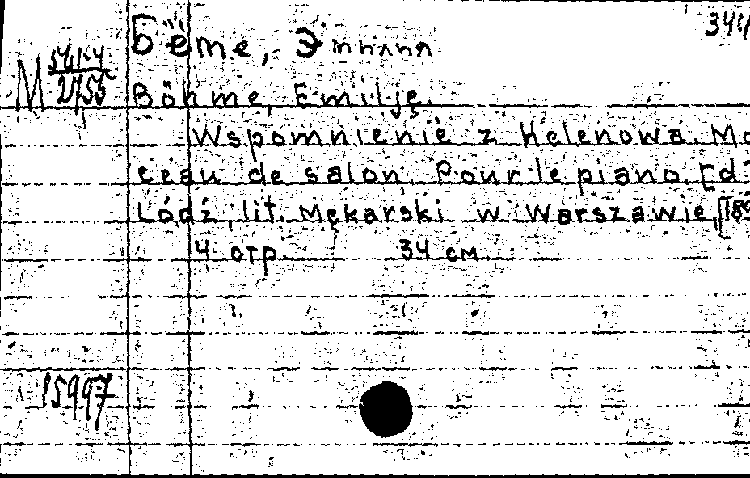 Бёме, Э
М
Böhme, Emilję.
Wspomnienie z Helenowa. Mo
ceau de salon. Pour le piano. [d
Łódź, lit. Mękarski w Warszawie, [189
4 стр. 34 см
15997